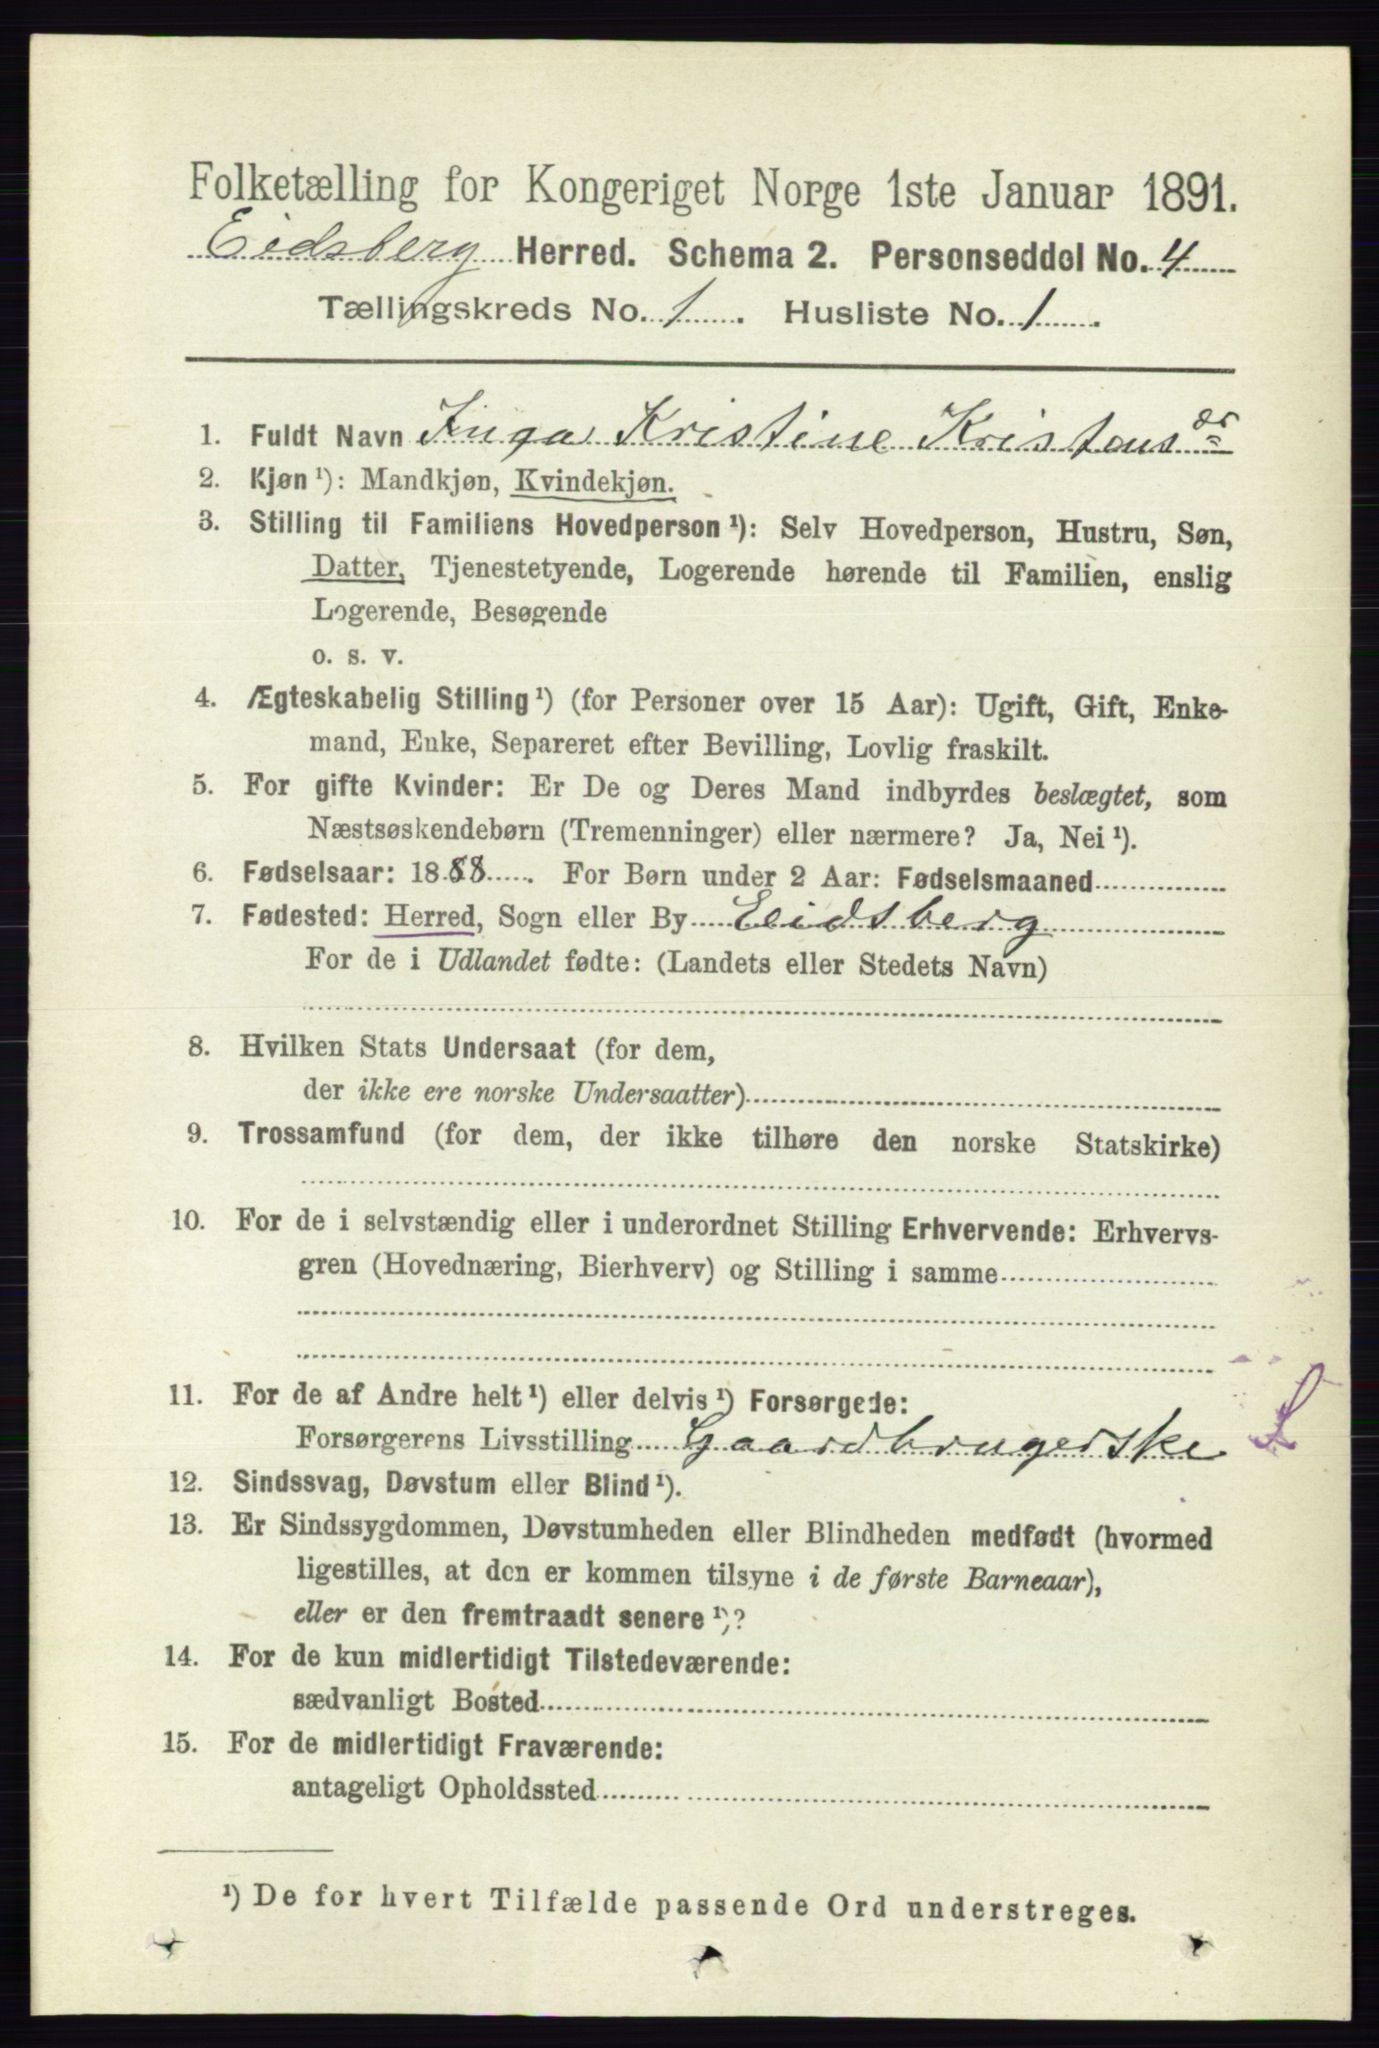 Folketælling for Kongeriget Norge 1ste Januar 1891.
Eidsberg Herred. Schema 2. Personseddel No. 4
Tællingskreds No. 1. Husliste No. 1.
1. Fuldt Navn Inga Kristine Kristens dr
2. Kjøn ¹): Mandkjøn, Kvindekjøn.
3. Stilling til Familiens Hovedperson ¹): Selv Hovedperson, Hustru, Søn,
Datter, Tjenestetyende, Logerende hørende til Familien, enslig
Logerende, Besøgende
o. s. v.
4. Ægteskabelig Stilling ¹) (for Personer over 15 Aar): Ugift, Gift, Enke-
mand, Enke, Separeret efter Bevilling, Lovlig fraskilt.
5. For gifte Kvinder: Er De og Deres Mand indbyrdes beslægtet, som
Næstsøskendebørn (Tremenninger) eller nærmere? Ja, Nei ¹).
6. Fødselsaar: 1888. For Børn under 2 Aar: Fødselsmaaned
7. Fødested: Herred, Sogn eller By Eidsberg
For de i Udlandet fødte: (Landets eller Stedets Navn)
8. Hvilken Stats Undersaat (for dem,
der ikke ere norske Undersaatter)
9. Trossamfund (for dem, der ikke tilhøre den norske Statskirke)
10. For de i selvstændig eller i underordnet Stilling Erhvervende: Erhvervs-
gren (Hovednæring, Bierhverv) og Stilling i samme
11. For de af Andre helt ¹) eller delvis ¹) Forsørgede:
Forsørgerens Livsstilling Gaardbrugerske
12. Sindssvag, Døvstum eller Blind ¹).
13. Er Sindssygdommen, Døvstumheden eller Blindheden medfødt (hvormed
ligestilles, at den er kommen tilsyne i de første Barneaar),
eller er den fremtraadt senere ¹)?
14. For de kun midlertidigt Tilstedeværende:
sædvanligt Bosted
15. For de midlertidigt Fraværende:
antageligt Opholdssted
¹) De for hvert Tilfælde passende Ord understreges.